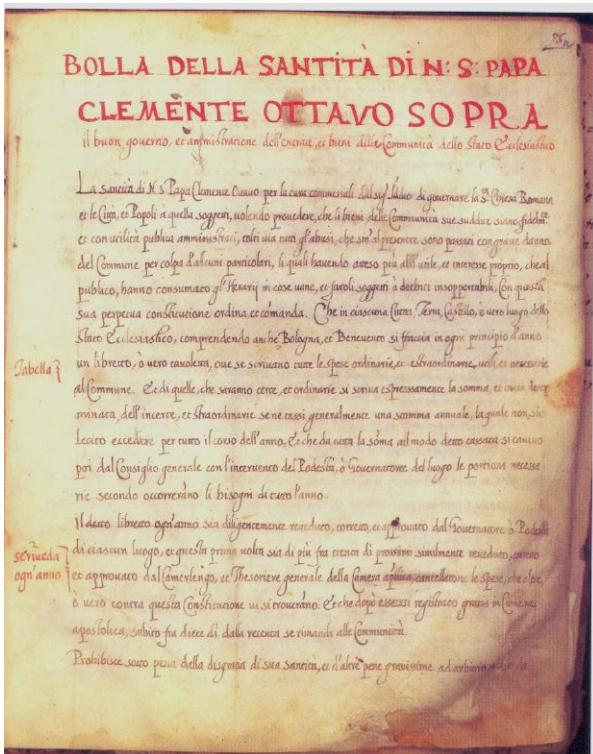 BOLLA DELLA SANTITÀ DI N: S: PAPA
CLEMENTE OTTAVO SOPRA
il buon governo, et amministratione dell'entrate, et beni delle Communità dello Stato Ecclesiastico
La santità di N. S. Papa Clemente Ottavo per la cura commessali dal sig.r Iddio di governare la S.ta Chiesa Romana
et le Città, et Popoli a quella soggetti, volendo provedere, che li beni delle Communità sue suddite siano fidelm.te
et con utilità publica amministrati, tolti via tutti gl'abusi, che sin'al presente sono passati con grave danno
del Commune per colpa d'alcuni particolari, li quali havendo atteso più all'utile, et interesse proprio, che al
publico, hanno consumato gl'Herarij in cose vane, et fattoli soggetti a debiti insopportabili, Con questa
sua perpetua constitutione ordina, et comanda. Che in ciascuna Città, Terra, Castello, ò vero luogo dello
Stato Ecclesiastico, comprendendo anche Bologna, et Benevento si faccia in ogni principio d'anno
un libretto, ò vero tavoletta, ove se scrivano tutte le spese ordinarie, et estraordinarie, utili, et necessarie
Tabella
al Commune. Et di quelle, che saranno certe, et ordinarie si scriva espressamente la somma, et causa deter
minata, dell'incerte, et straordinarie se ne tassi generalmente una somma annuale, la quale non sia
lecito eccedere per tutto il corso dell'anno, Et che da tutta la sõma nel modo detto tassata si cavino
poi dal Consiglio generale con l'intervento del Podestà, ò Governatore del luogo le portioni necessa
rie secondo occorrerano li bisogni di tutto l'anno.
Il detto libretto ogn'anno sia diligentemente reveduto, corretto, et approvato dal Governatore ò Podestà
se riveda
ogn'anno
di ciascun luogo, et questa prima volta sia di più fra trenta dì prossimi similmente reveduto, corretto
et approvato dal Camerlengo, et Thesoriere generale della Camera ap.lica, cancellatone le spese, che
ò vero contra questa Constitutione vi si troverãno. Et che dopò essersi registrato gratis in Camera
apostolica, subito fra diece dì dalla receuta se rimandi alle Communità.
Prohibisce sotto pena della disgratia di sua santità, et d'altre pene gravissime ad arbitrio